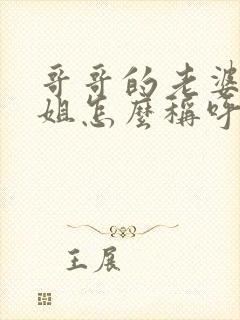 哥哥的老婆
姐怎麼稱呼
王展